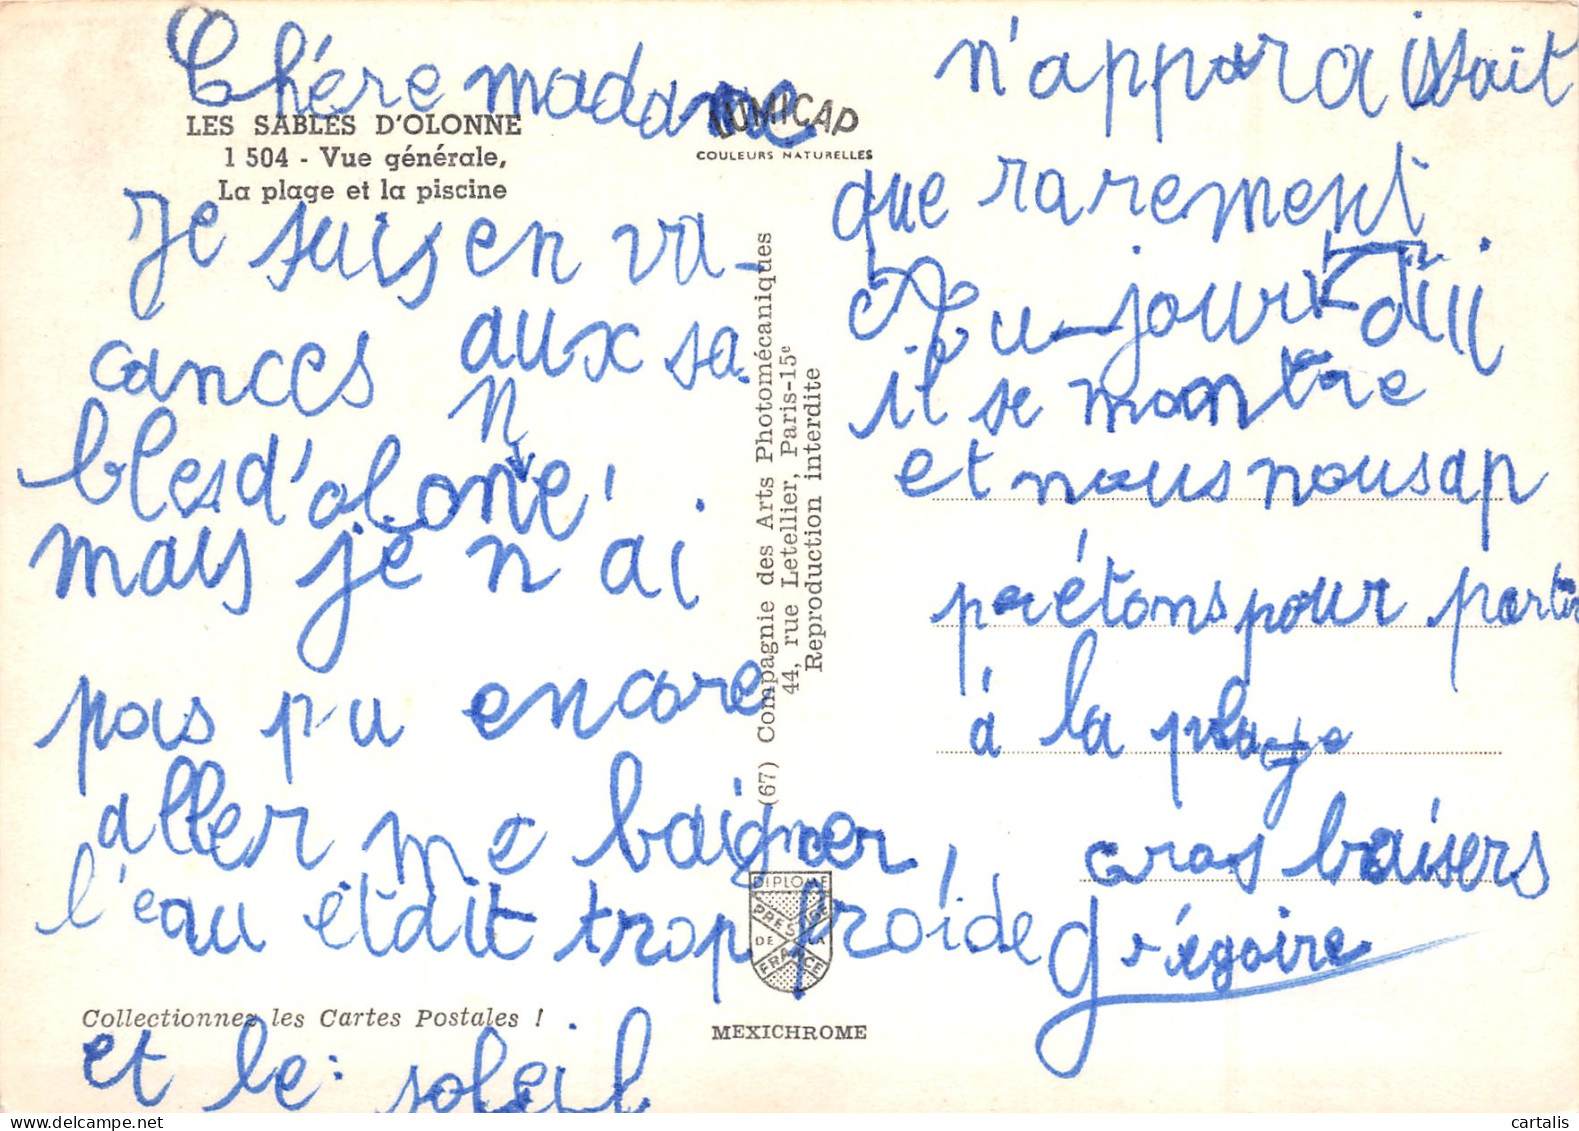 Chére madame
LES SABLES D'OLONNE
1 504 - Vue générale,
La plage et la piscine
Je suis en va-
cances aux sa-
bles d'olonne,
mais je n'ai
pas pu encore
aller me baigner,
l'eau était trop froide
Collectionnez les Cartes Postales !
et le soleil
LUMICAP
COULEURS NATURELLES
(67) Compagnie des Arts Photomécaniques
44, rue Letellier, Paris-15e
Reproduction interdite
DIPLOME
PRESTIGE
DE LA
FRANCE
MEXICHROME
n'apparaissait
que rarement
Au-jourd'hui
il se montre
et nous nous ap
prétons pour partir
à la plage
Gros baisers
Grégoire
cartalis